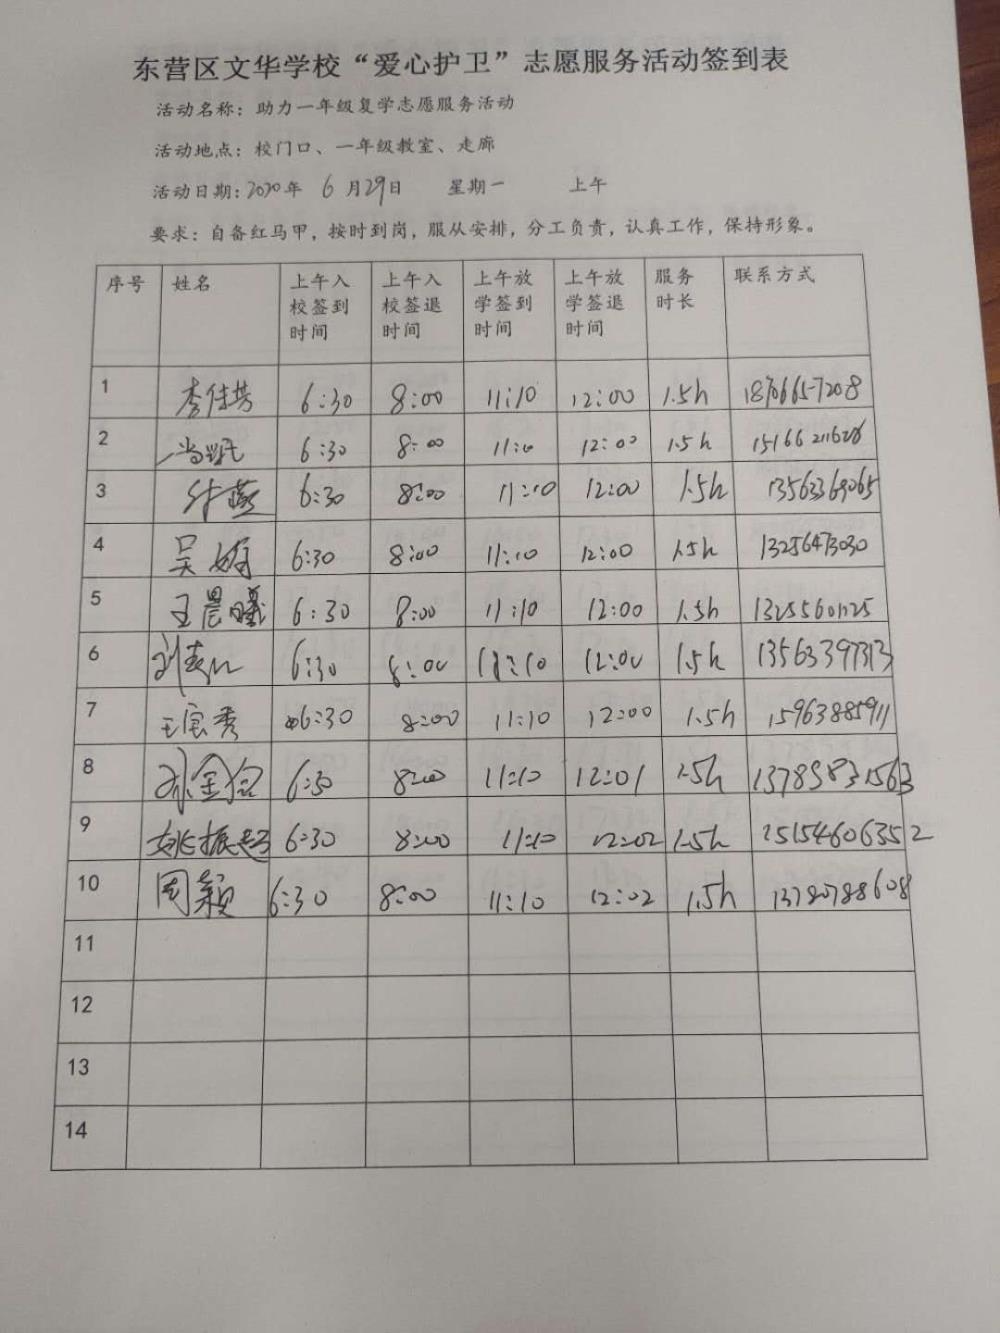 东营区文华学校“爱心护卫”志愿服务活动签到表
活动名称：助力一年级复学志愿服务活动
活动地点：校门口、一年级教室、走廊
活动日期：2020年 6月29日 星期一 上午
要求：自备红马甲，按时到岗，服从安排，分工负责，认真工作，保持形象。
序号 姓名 上午入校签到时间 上午入校签退时间 上午放学签到时间 上午放学签退时间 服务时长 联系方式
1 6:30 8:00 11:10 12:00 1.5h 18766657208
2 6:30 8:00 11:10 12:00 1.5h 15166211626
3 6:30 8:00 11:10 12:00 1.5h 13563369065
4 吴娟 6:30 8:00 11:10 12:00 1.5h 13256473030
5 王晨曦 6:30 8:00 11:10 12:00 1.5h 13255601125
6 6:30 8:00 11:10 12:00 1.5h 13563397313
7 6:30 8:00 11:10 12:00 1.5h 15963885911
8 6:30 8:00 11:10 12:01 1.5h 13785831563
9 姚振超 6:30 8:00 11:10 12:02 1.5h 15154606352
10 周颖 6:30 8:00 11:10 12:02 1.5h 13780788608
11
12
13
14